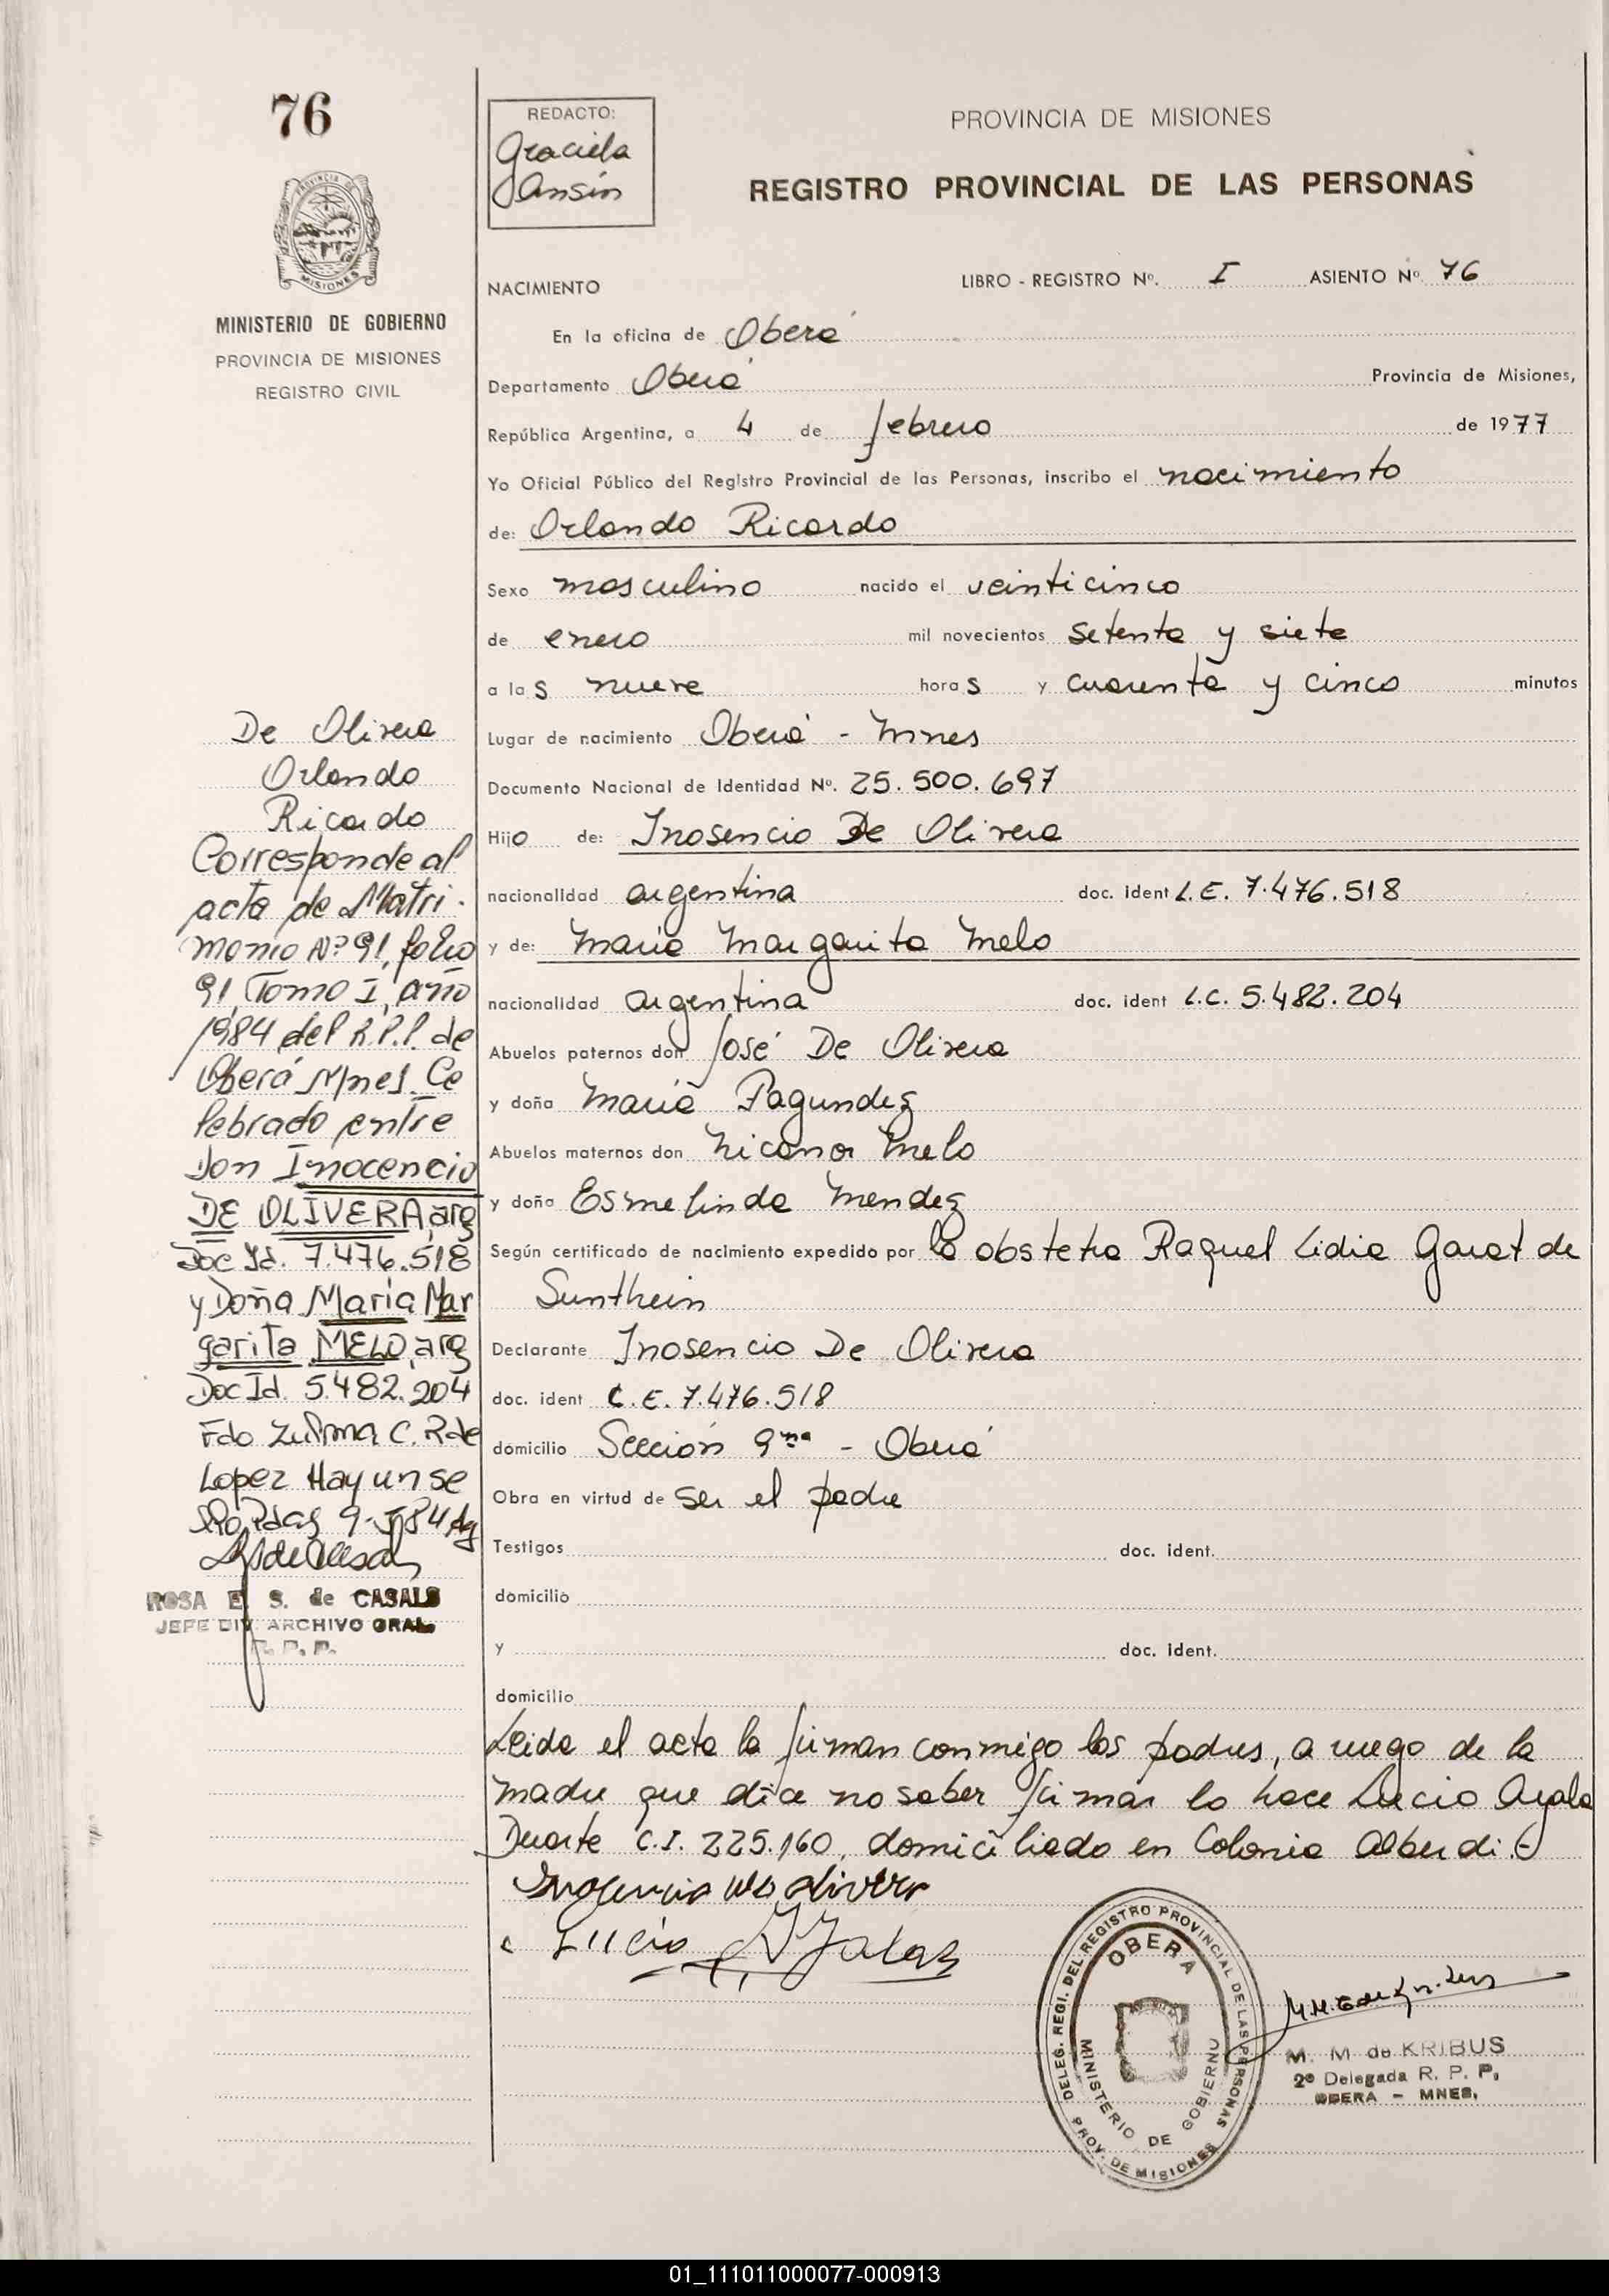 76
PROVINCIA DE MISIONES
MISIONES
MINISTERIO DE GOBIERNO
PROVINCIA DE MISIONES
REGISTRO CIVIL
De Olivera
Orlando
Ricardo
Corresponde al
acta de Matri-
monio Nº 91, folio
91, Tomo I, año
1984 del R.P.P. de
Oberá Mnes. Ce
lebrado entre
Don Inocencio
DE OLIVERA, arg
Doc Id. 7.476.518
y Doña Maria Mar
garita MELO, arg
Doc Id. 5.482.204
Fdo Zulma C. R de
Lopez Hay un se
llo Pdas 9-5-84
ROSA E. S. de CASALS
JEFE DIV. ARCHIVO GRAL.
R. P. P.
REDACTO:
Graciela
Jansin
PROVINCIA DE MISIONES
REGISTRO PROVINCIAL DE LAS PERSONAS
NACIMIENTO LIBRO - REGISTRO Nº. I ASIENTO Nº 76
En la oficina de Oberá
Departamento Oberá Provincia de Misiones,
República Argentina, a 4 de febrero de 1977
Yo Oficial Público del Registro Provincial de las Personas, inscribo el nacimiento
de: Orlando Ricardo
Sexo masculino nacido el veinticinco
de enero mil novecientos setenta y siete
a las nueve horas y cuarenta y cinco minutos
Lugar de nacimiento Oberá - Mnes
Documento Nacional de Identidad Nº. 25.500.697
Hijo de: Inosencio De Olivera
nacionalidad argentina doc. ident L.E. 7.476.518
y de: Maria Margarita Melo
nacionalidad argentina doc. ident L.C. 5.482.204
Abuelos paternos don José De Olivera
y doña Maria Fagundez
Abuelos maternos don Nicanor Melo
y doña Esmelinda Mendez
Según certificado de nacimiento expedido por la obstetra Raquel Lidia Garat de
Sunthein
Declarante Inosencio De Olivera
doc. ident L.E. 7.476.518
domicilio Sección 9na - Oberá
Obra en virtud de ser el padre
Testigos doc. ident.
domicilio
y doc. ident.
domicilio
Leida el acta la firman conmigo los padres, a ruego de la
madre que dice no saber firmar lo hace Lucio Ayala
Duarte C.I. 225.160, domiciliado en Colonia Alberdi.-
Lucio Ayala
DELEG. REGI. DEL REGISTRO PROVINCIAL DE LAS PERSONAS
OBERA
MINISTERIO DE GOBIERNO
PROV. DE MISIONES
M. M. de KRIBUS
2º Delegada R. P. P.
OBERA - MNES.
01_111011000077-000913